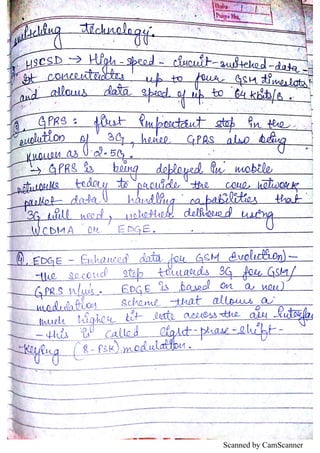 Date
Page No.
switching technology.
HSCSD → High-speed-circuit-switched-data-
It concentrates up to four GSM timeslots
and allows data speed of up to 64 kbit/s.
3. GPRS: first important step in the
evolution of 3G, hence GPRS also being
known as 2.5G.
→ GPRS is being deployed in mobile
networks today to provide the core network
packet data handling capabilities that
3G will need, whether delivered using
WCDMA or EDGE.
4. EDGE - Enhanced data for GSM Evolution) -
the second step towards 3G for GSM/
GPRS n/ws. EDGE is based on a new
modulation scheme that allows a
much higher bit rate across the air interface
- this is called eight-phase-shift-
-keying (8-PSK) modulation.
Scanned by CamScanner